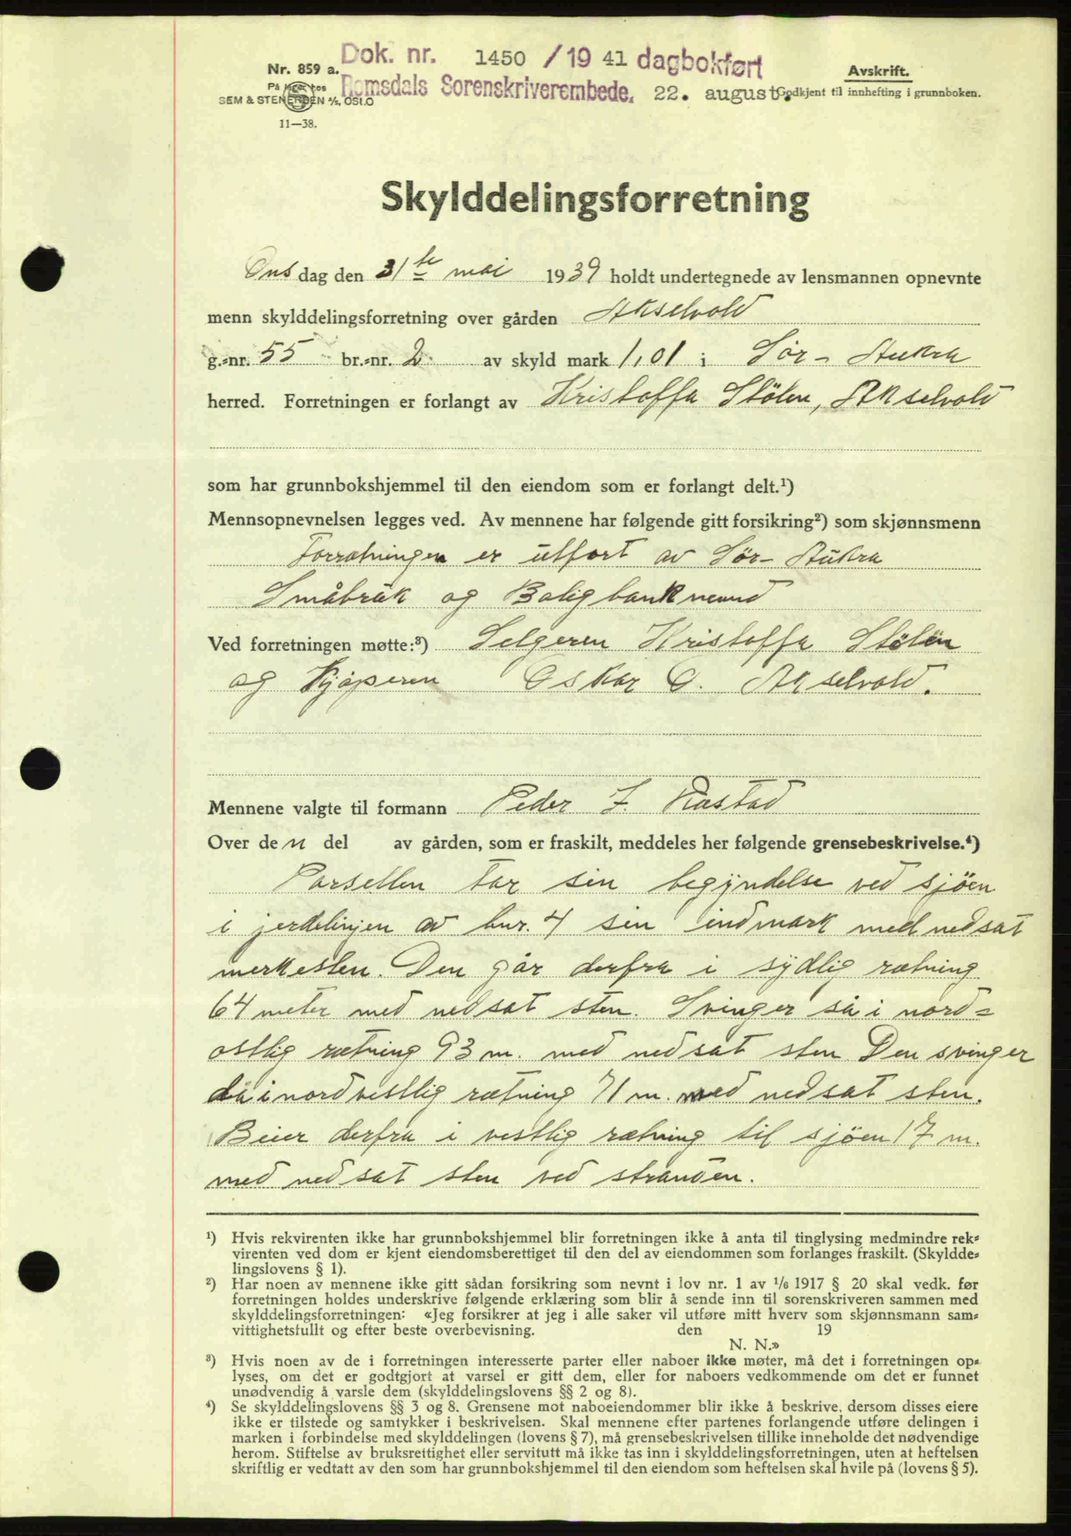 Nr. 859 a.
På lager hos
SEM & STENERSEN A/S, OSLO
11—38.
Dok. nr. 1450 / 19 41 dagbokført
Romsdals Sorenskriverembede. 22. august.
Avskrift.
Godkjent til innhefting i grunnboken.
Skylddelingsforretning
Onsdag den 31te mai 1939 holdt undertegnede av lensmannen opnevnte
menn skylddelingsforretning over gården Akselvold
g.-nr. 55 br.-nr. 2. av skyld mark 1,01 i Sør-Aukra
herred. Forretningen er forlangt av Kristoffa Stølen, Akselvold
som har grunnbokshjemmel til den eiendom som er forlangt delt.¹)
Mennsopnevnelsen legges ved. Av mennene har følgende gitt forsikring²) som skjønnsmenn
Forretningen er utført av Sør-Aukra
Småbruk og Boligbanknevnd
Ved forretningen møtte:³) Selgeren Kristoffa Stølen
og Kjøperen Oskar O. Akselvold.
Mennene valgte til formann Peder J. Rastad
Over den del av gården, som er fraskilt, meddeles her følgende grensebeskrivelse.⁴)
Parsellen tar sin begyndelse ved sjøen
i jerdelinjen av bnr. 4 sin indmark med nedsat
merkesten. Den går derfra i sydlig rætning
64 meter med nedsat sten. Svinger så i nord=
ostlig rætning 93 m. med nedsat sten Den svinger
då i nordvestlig rætning 71 m. med nedsat sten.
Beier derfra i vestlig rætning til sjøen 17 m.
med nedsat sten ved stranden.
¹) Hvis rekvirenten ikke har grunnbokshjemmel blir forretningen ikke å anta til tinglysing medmindre rek-
virenten ved dom er kjent eiendomsberettiget til den del av eiendommen som forlanges fraskilt. (Skyldde-
lingslovens § 1).
²) Har noen av mennene ikke gitt sådan forsikring som nevnt i lov nr. 1 av 1/6 1917 § 20 skal vedk. før
forretningen holdes underskrive følgende erklæring som blir å sende inn til sorenskriveren sammen med
skylddelingsforretningen: «Jeg forsikrer at jeg i alle saker vil utføre mitt hverv som skjønnsmann sam-
vittighetsfullt og efter beste overbevisning. den 19
N. N.»
³) Hvis noen av de i forretningen interesserte parter eller naboer ikke møter, må det i forretningen op-
lyses, om det er godtgjort at varsel er gitt dem, eller for naboers vedkommende om det er funnet
unødvendig å varsle dem (skylddelingslovens §§ 2 og 8).
⁴) Se skylddelingslovens §§ 3 og 8. Grensene mot naboeiendommer blir ikke å beskrive, dersom disses eiere
ikke er tilstede og samtykker i beskrivelsen. Skal mennene efter partenes forlangende utføre delingen i
marken i forbindelse med skylddelingen (lovens § 7), må grensebeskrivelsen tillike inneholde det nødvendige
herom. Stiftelse av bruksrettighet eller servitutt må ikke tas inn i skylddelingsforretningen, uten at heftelsen
skriftlig er vedtatt av den som har grunnbokshjemmel til den eiendom som heftelsen skal hvile på (lovens § 5).